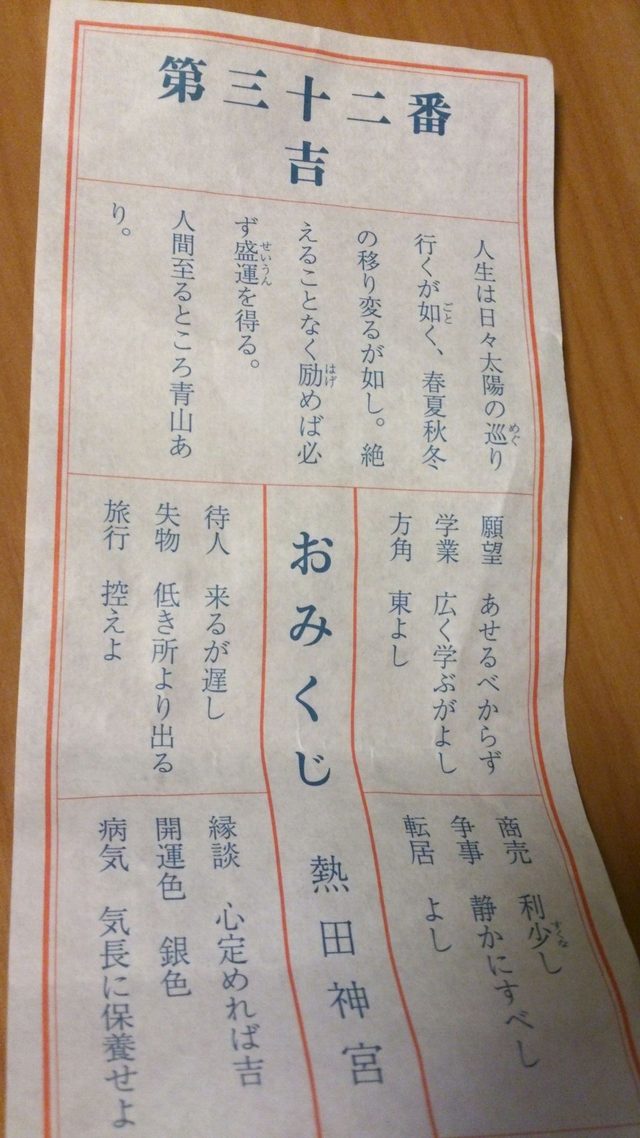 第三十二番
吉
人生は日々太陽の巡り
めぐ
行くが如く、春夏秋冬
ごと
の移り変るが如し。絶
えることなく励めば必
はげ
ず盛運を得る。
せいうん
人間至るところ青山あ
り。
願望 あせるべからず
学業 広く学ぶがよし
方角 東よし
おみくじ 熱田神宮
待人 来るが遅し
失物 低き所より出る
旅行 控えよ
商売 利少し
すくな
争事 静かにすべし
転居 よし
縁談 心定めれば吉
開運色 銀色
病気 気長に保養せよ